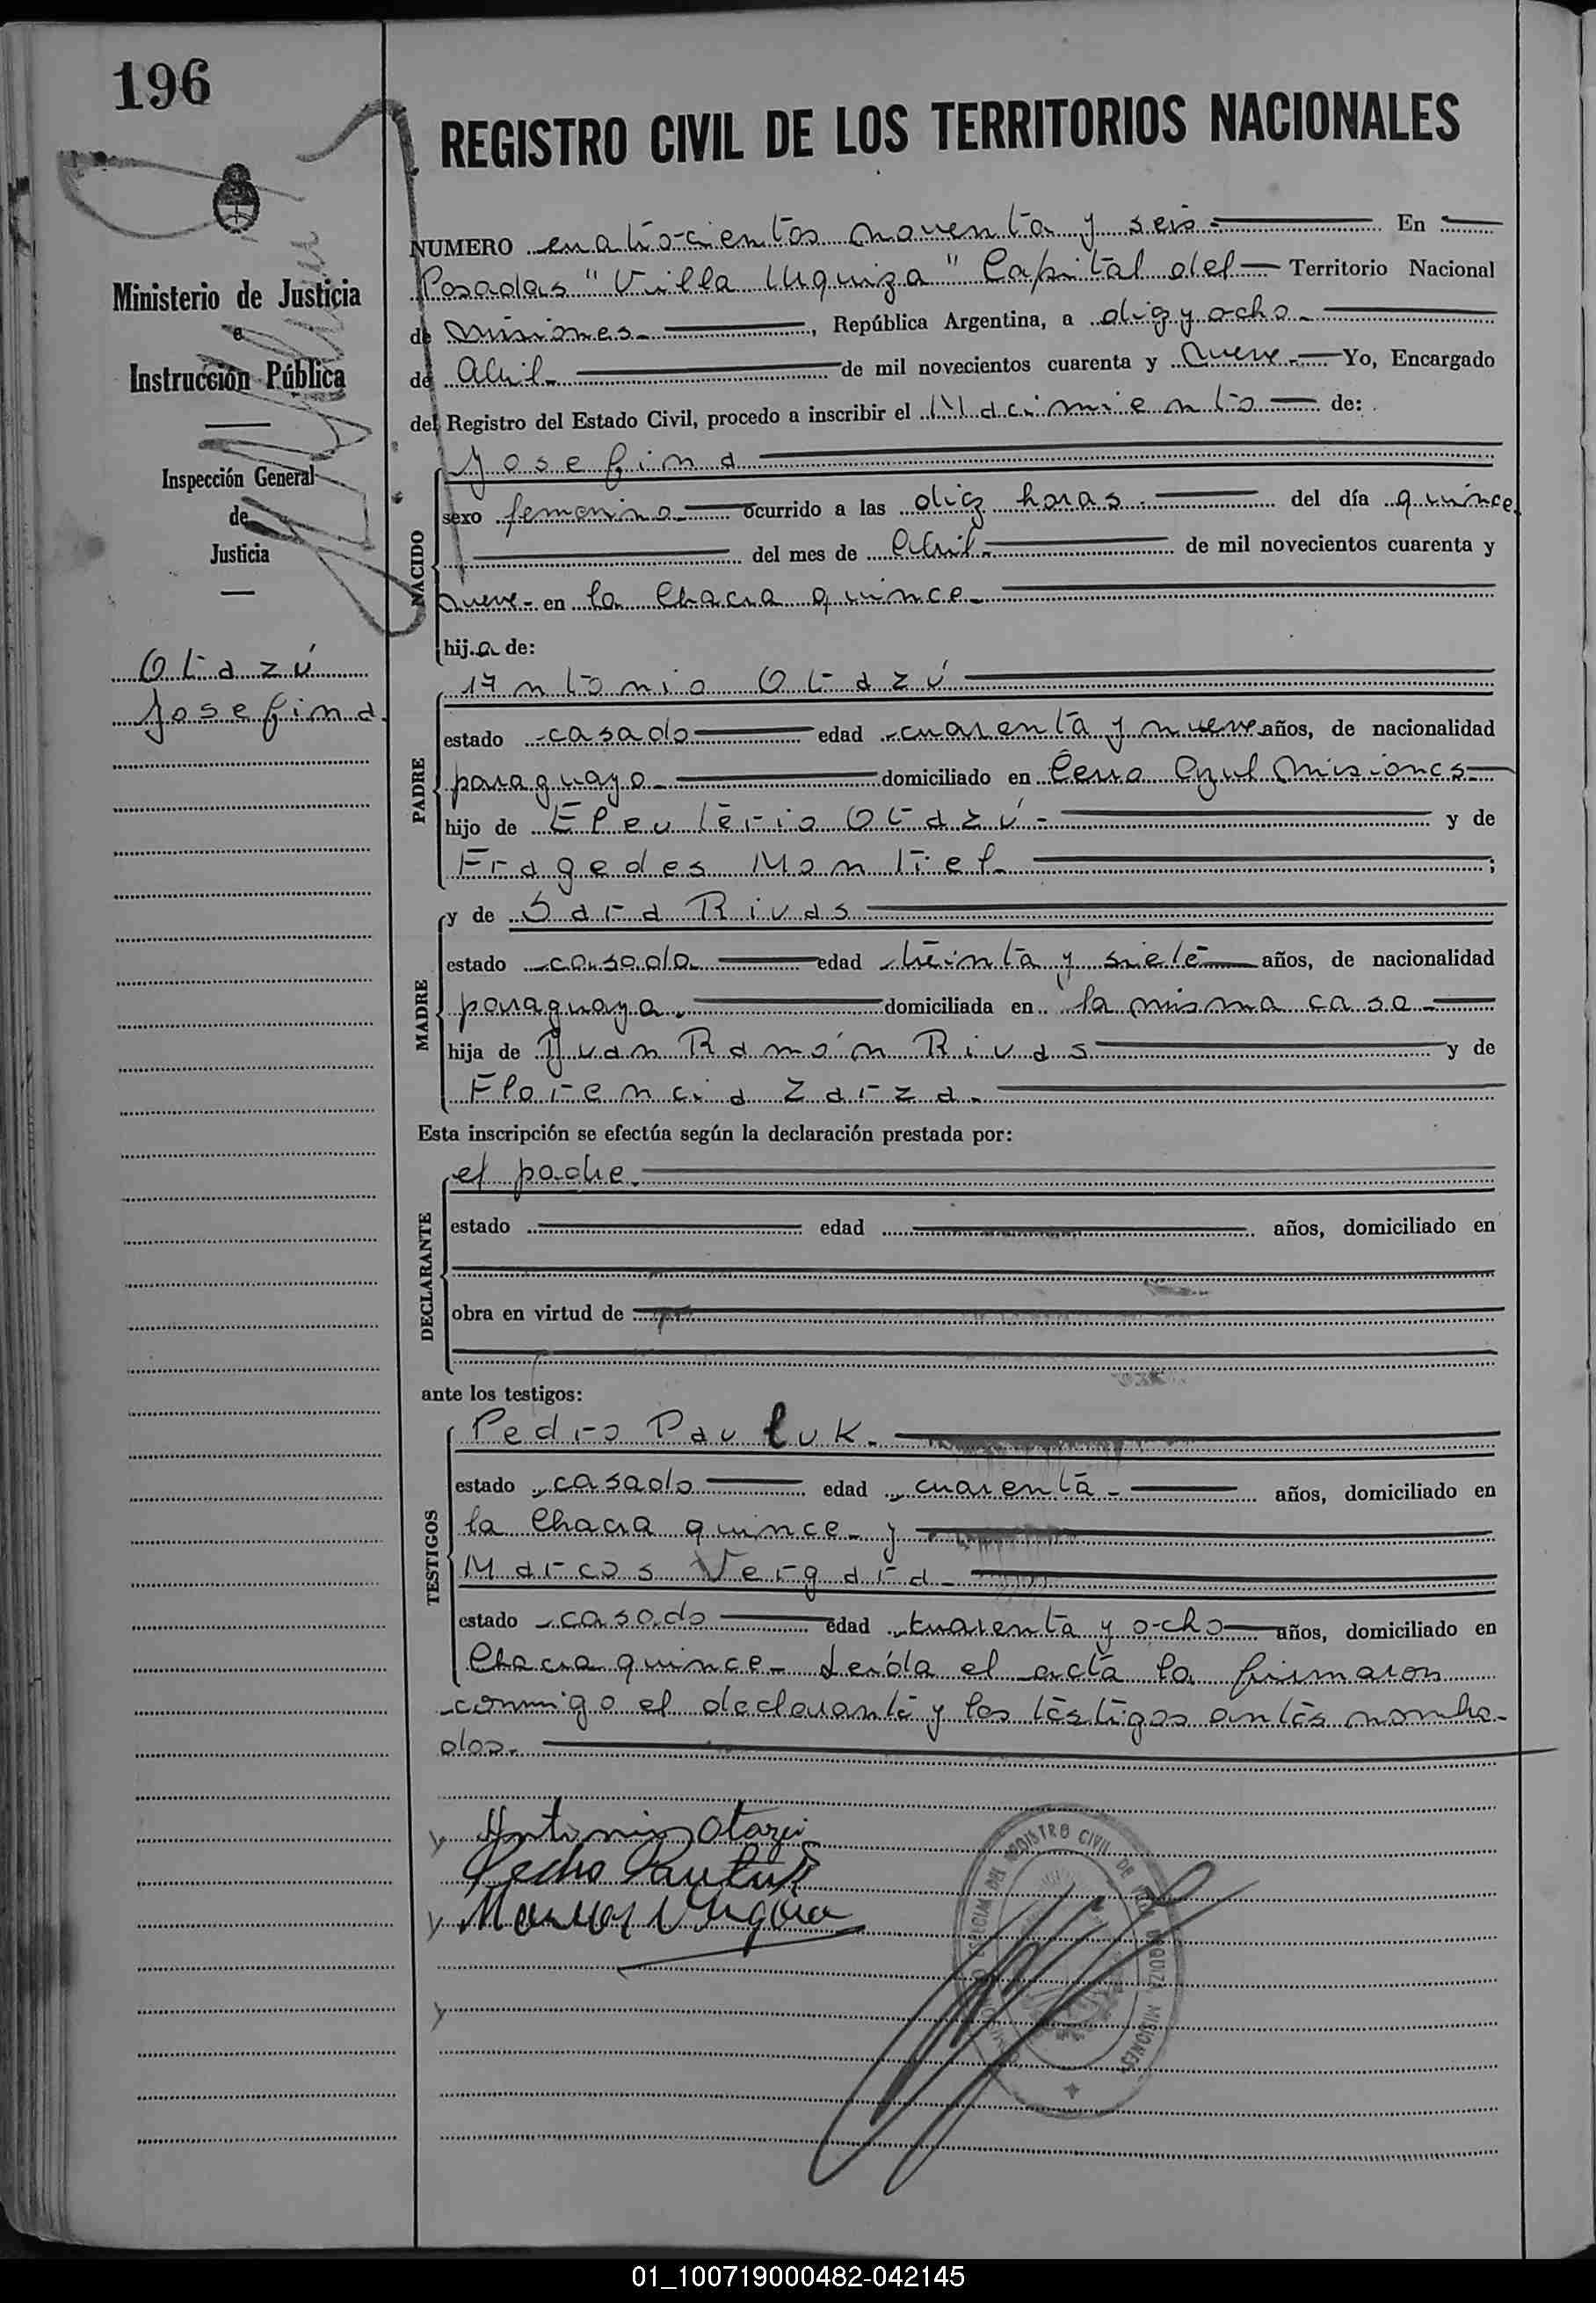 196
REGISTRO CIVIL DE LOS TERRITORIOS NACIONALES
Ministerio de Justicia
e
Instrucción Pública
Inspección General
de
Justicia
Otazú
Josefina
NUMERO cuatrocientos noventa y seis En
Posadas "Villa Urquiza" Capital del Territorio Nacional
de Misiones, República Argentina, a diez y ocho
de Abril de mil novecientos cuarenta y nueve Yo, Encargado
del Registro del Estado Civil, procedo a inscribir el Nacimiento de:
Josefina
NACIDO
sexo femenino ocurrido a las diez horas del día quince
del mes de Abril de mil novecientos cuarenta y
nueve en la Chacra quince
hija de:
PADRE
Antonio Otazú
estado casado edad cuarenta y nueve años, de nacionalidad
paraguayo domiciliado en Cerro Azul Misiones
hijo de Eleuterio Otazú y de
Fragedes Montiel ;
MADRE
y de Sara Rivas
estado casada edad treinta y siete años, de nacionalidad
paraguaya domiciliada en la misma casa
hija de Juan Ramón Rivas y de
Florencia Zarza.
Esta inscripción se efectúa según la declaración prestada por:
DECLARANTE
el padre.
estado edad años, domiciliado en
obra en virtud de
ante los testigos:
TESTIGOS
Pedro Pauluk.
estado casado edad cuarenta años, domiciliado en
la Chacra quince y
Marcos Vergara
estado casado edad cuarenta y ocho años, domiciliado en
Chacra quince. Leída el acta la firmaron
conmigo el declarante y los testigos antes nombra-
dos.
Antonio Otazú
Pedro Pauluk
Marcos Vergara
REGISTRO CIVIL DE VILLA URQUIZA MISIONES
01_100719000482-042145